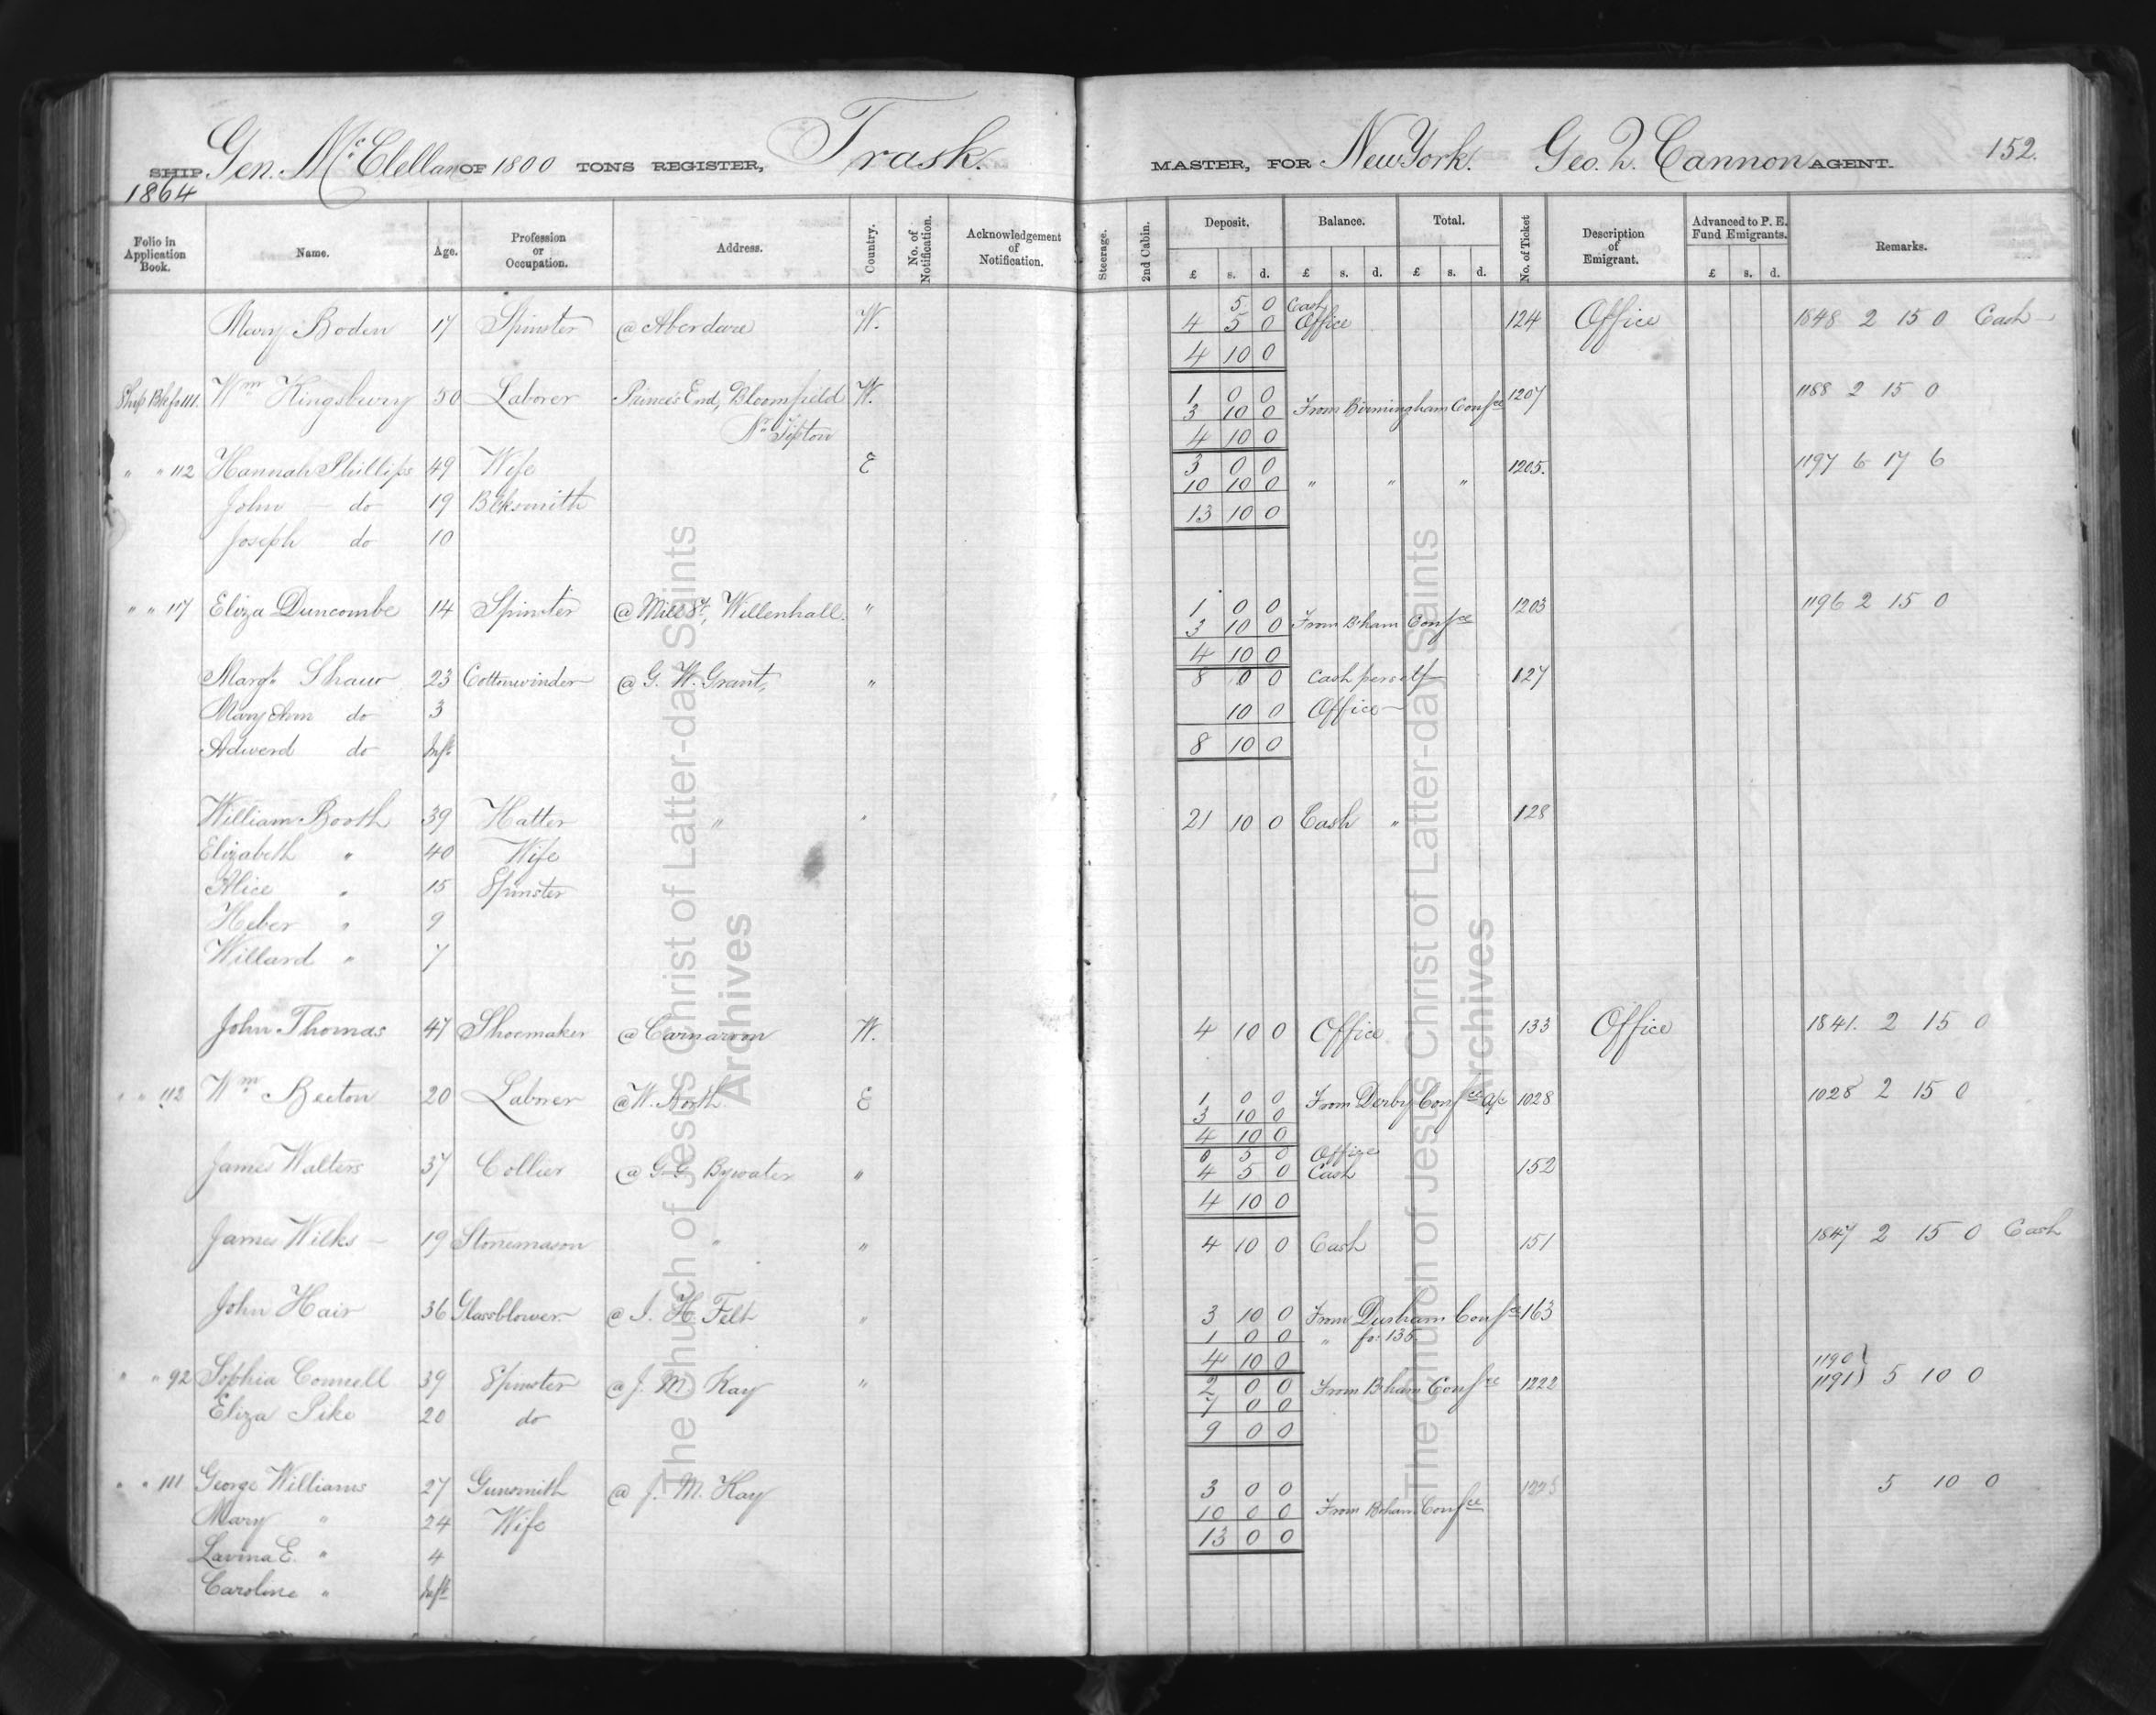 SHIP Gen. McClellan OF 1800 TONS REGISTER, Trask. MASTER, FOR New York. Geo. Q. Cannon AGENT. 152.
1864
Folio in Application Book. Name. Age. Profession or Occupation. Address. Country. No. of Notification. Acknowledgement of Notification. Steerage. 2nd Cabin. Deposit. Balance. Total. No. of Ticket Description of Emigrant. Advanced to P. E. Fund Emigrants. Remarks.
£ s. d. £ s. d. £ s. d. £ s. d.
5 0 Cash
Mary Boden 17 Spinster @ Aberdare W. 4 5 0 Office 124 Office 1848 2 15 0 Cash
4 10 0
Ship Bk fo 111. Wm Kingsbury 50 Laborer Princes End, Bloomfield W. 1 0 0 1207 1188 2 15 0
Nr Tipton 3 10 0 From Birmingham Confce
4 10 0
" " 112 Hannah Phillips 49 Wife E 3 0 0 1205. 1197 6 17 6
John do 19 Blksmith 10 10 0 " " "
13 10 0
Joseph do 10
" " 117 Eliza Duncombe 14 Spinster @ Mill St, Willenhall. " 1 0 0 1203 1196 2 15 0
3 10 0 From Bham Confce
4 10 0
Margt. Shaw 23 Cottonwinder @ G. W. Grant, " 8 0 0 Cash per self 127
Mary Ann do 3 10 0 Office
Adwerd do Inft. 8 10 0
William Booth 39 Hatter " " 21 10 0 Cash " 128
Elizabeth " 40 Wife
Alice " 15 Spinster
Heber " 9
Willard " 7
John Thomas 47 Shoemaker @ Carnarvon W. 4 10 0 Office 133 Office 1841. 2 15 0
" " 112 Wm Beeton 20 Laborer @ W. North E 1 0 0 From Derby Confce a/c 1028 1028 2 15 0
3 10 0
4 10 0
0 5 0 Office
James Walters 37 Collier @ G. G. Bywater " 4 5 0 Cash 152
4 10 0
James Wilks 19 Stonemason " " 4 10 0 Cash 151 1847 2 15 0 Cash
John Hair 36 Glassblower @ J. H. Felt " 3 10 0 From Durham Confce 163
1 0 0 " fo. 135
4 10 0
" " 92 Sophia Connell 39 Spinster @ J. M. Kay " 2 0 0 From Bham Confce 1222 1190 } 1191 } 5 10 0
Eliza Pike 20 do 7 0 0
9 0 0
" " 111 George Williams 27 Gunsmith @ J. M. Kay 3 0 0 5 10 0
Mary " 24 Wife 10 0 0 From Bham Confce
Lavina E. " 4 13 0 0
Caroline " Inft
The Church of Jesus Christ of Latter-day Saints
Archives
The Church of Jesus Christ of Latter-day Saints
Archives